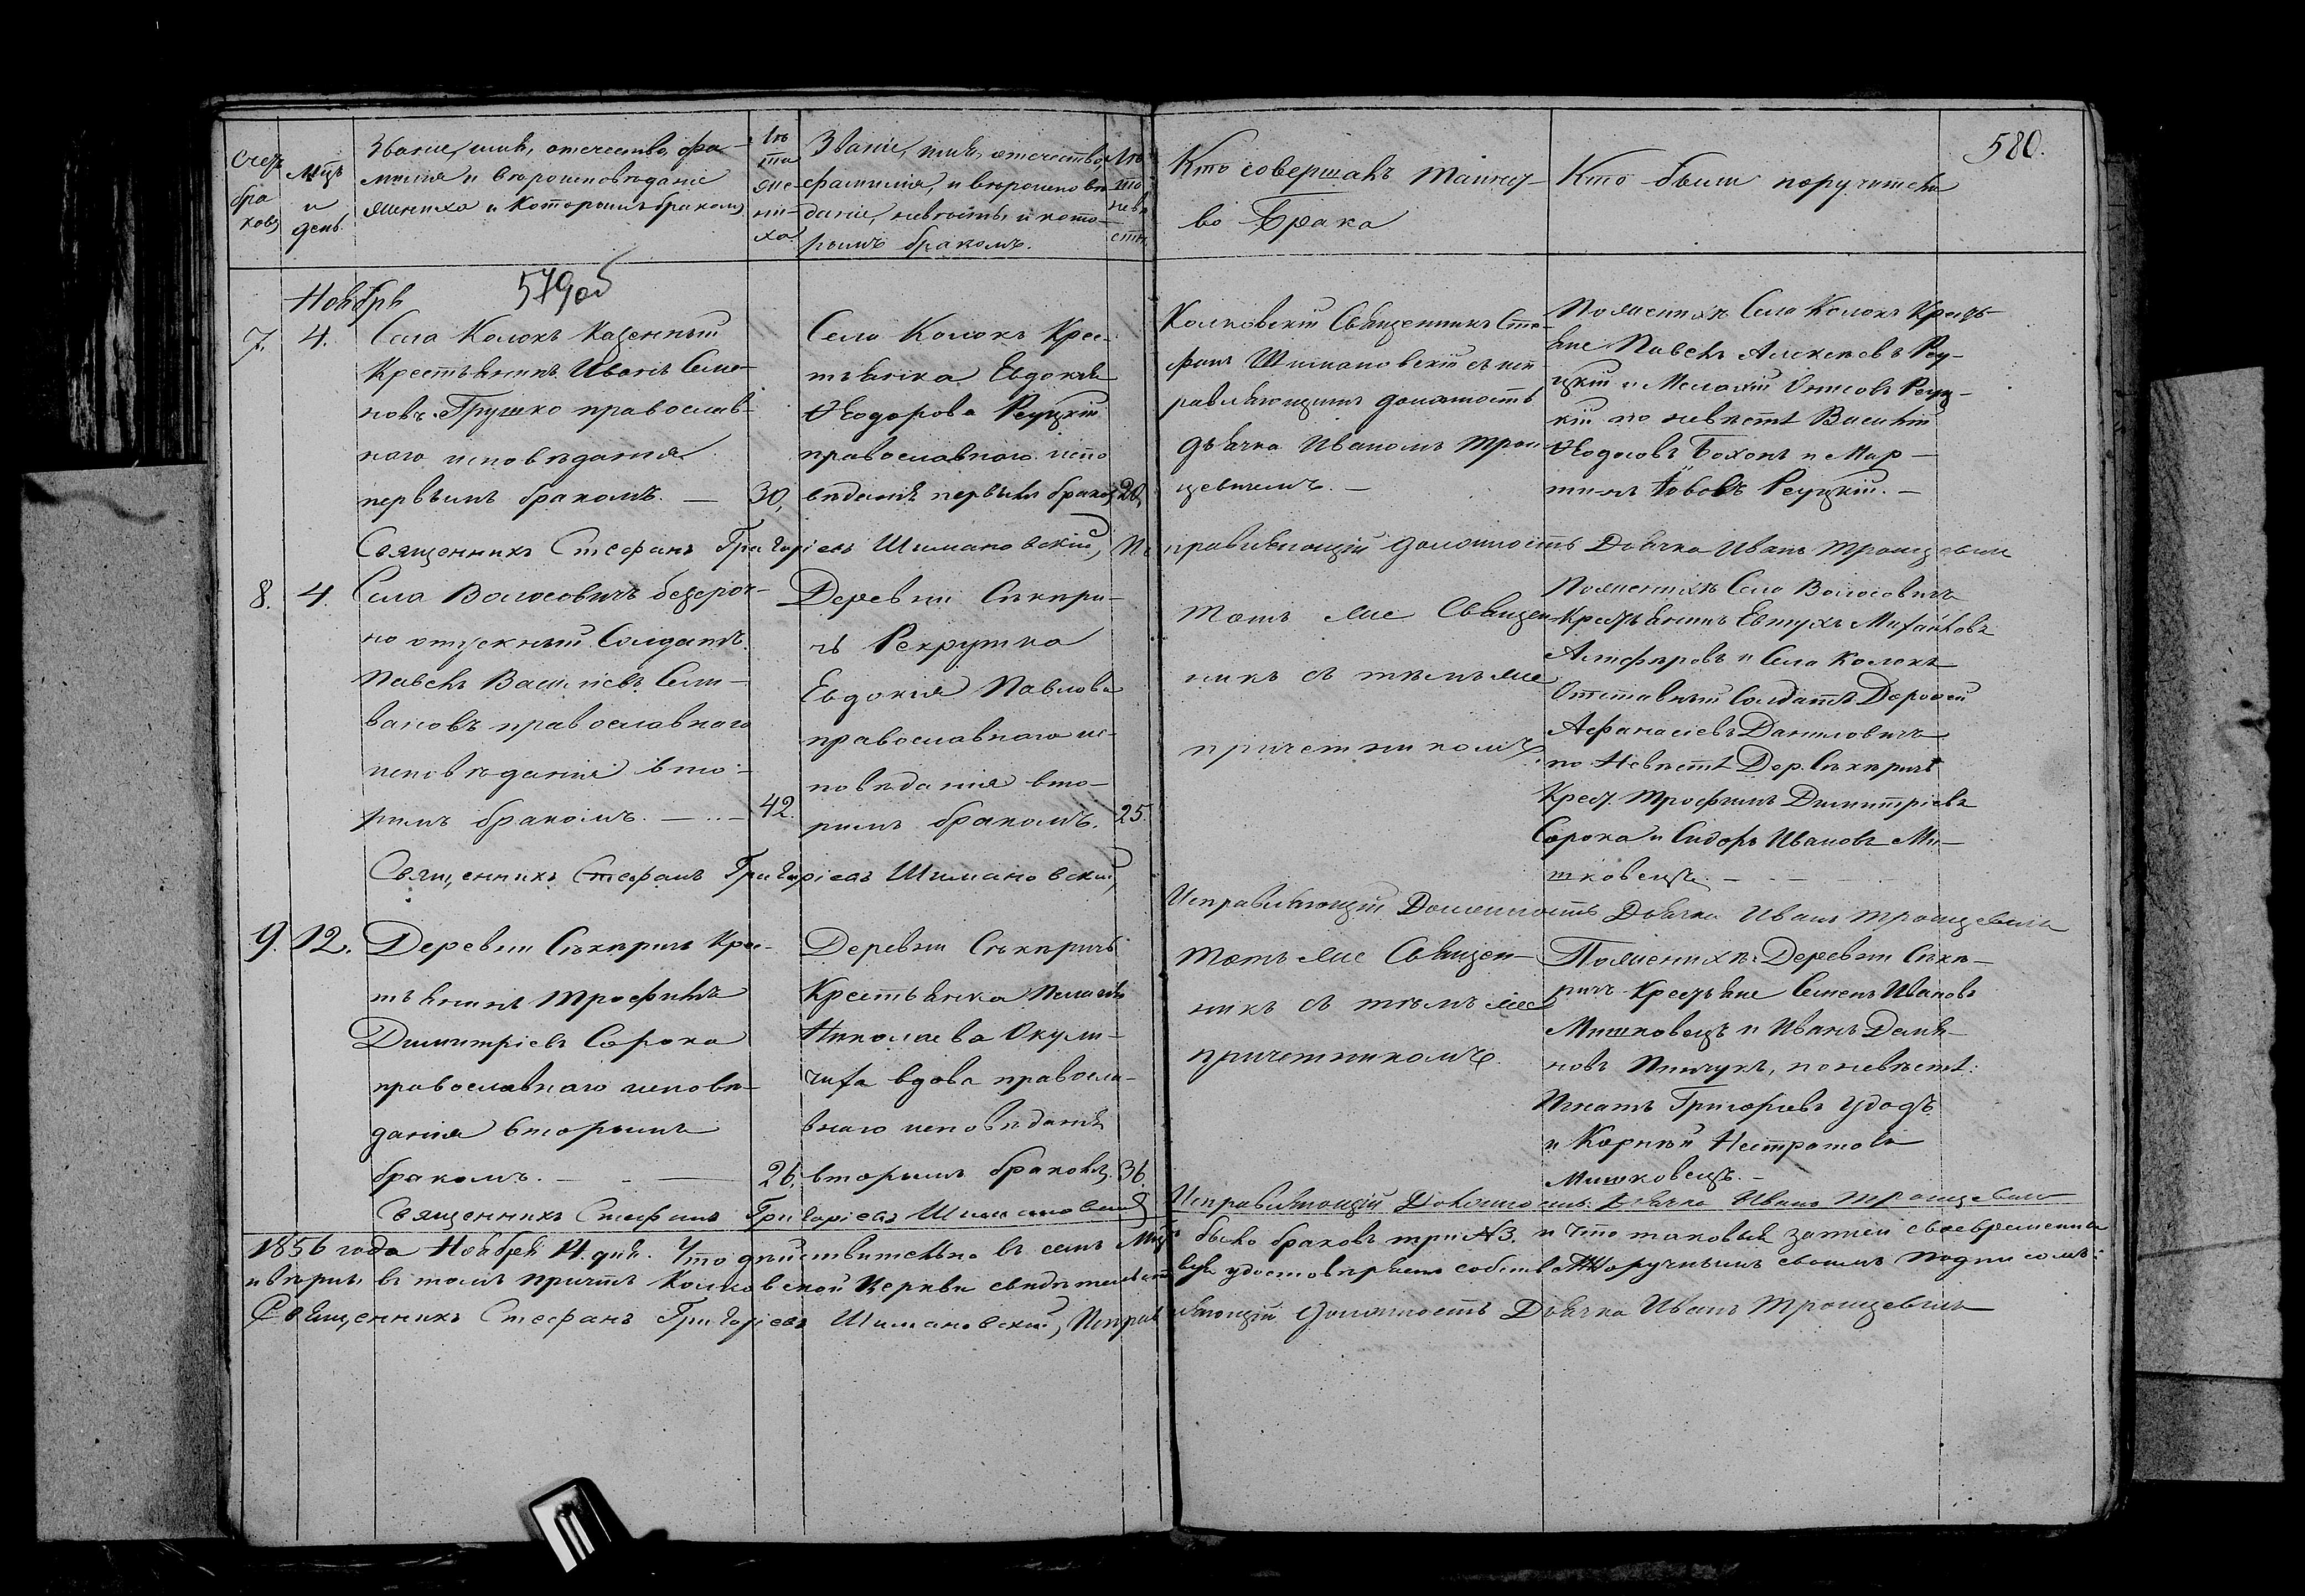 580.
Счетъ браковъ
Мцъ и день
Званіе, имя, отечество, фа-
милія и вѣроисповѣданіе
жениха и которымъ бракомъ
Лѣ
та
же-
ни-
ха.
Званіе, имя, отечество,
фамилія, и вѣроисповѣ
даніе, невѣсты и кото-
рымъ бракомъ.
Лѣ
та
невѣ
сты
Кто совершалъ таинст-
во Брака
Кто были поручители
579об
Ноябрь
7. 4.
Села Колокъ Казенный
Крестьянинъ Иванъ Семе-
новъ Грушко православ-
наго исповѣданія
первымъ бракомъ. — 30,
Села Колокъ Крес-
тьянка Евдокія
Ѳеодорова Реуцкій
православнаго испо
вѣданія первымъ бракомъ 20,
Колковскій Священникъ Сте-
фанъ Шимановскій съ исп
равляющимъ должность
дьячка Иваномъ Трои
цевичемъ. —
По женихѣ Села Колокъ Крестья-
не Павелъ Алексѣевъ Реу-
цкій и Мелахій Онисовъ Реуц-
кій по невѣстѣ Василій
Ѳеодосовъ Бохонъ и Мар-
тинъ Іововъ Реуцкій. —
Священникъ Стефанъ Григоріевъ Шимановскій, Исправляющій должность Дьячка Иванъ
8. 4.
Села Волосовичъ безсроч-
но отпускный Солдатъ
Павелъ Василіевъ Сели-
вановъ православнаго
исповѣданія вто-
рымъ бракомъ. — .. — 42.
Деревни Сѣкири-
чъ Рекрутка
Евдокія Павлова
православнаго ис-
повѣданія вто-
рымъ бракомъ. 25.
Тотъ же Священ-
никъ съ тѣмъ же
причетникомъ.
По женихѣ Села Волосовичъ
Крестьянинъ Евтухъ Михайловъ
Алифѣровъ и Села Колокъ
Отставный Солдатъ Дорофей
Афанасіевъ Даниловичъ
по Невѣстѣ Дер. Сѣкѣричъ
Крест. Трофимъ Димитріевъ
Сорока и Сидоръ Ивановъ Ми-
шковецъ. —
Священникъ Стефанъ Григоріевъ Шимановскій,
Исправляющій Должность Дьячка Иванъ
9. 12.
Деревни Сѣкѣричъ Крес-
тьянинъ Трофимъ
Димитріевъ Сорока
православнаго исповѣ-
данія вторымъ
бракомъ. — 26.
Деревни Сѣкѣричъ
Крестьянка Пелагія
Николаева Окули-
чиха вдова правосла-
внаго исповѣданія
вторымъ бракомъ. 36.
Тотъ же Священ-
никъ съ тѣмъ же
причетникомъ.
По женихѣ Деревни Сѣкѣ-
ричъ Крестьяне Семенъ Ивановъ
Мишковецъ и Иванъ Демья-
новъ Пинчукъ, по невѣстѣ:
Игнатъ Григорьевъ Удодъ
и Корнѣй Нестратовъ
Мишковецъ. —
Священникъ Стефанъ Григоріевъ Шимановскій
Исправляющій Должность Дьячка Иванъ
1856 года Ноября 14. дня. Что дѣйствительно въ семъ Мцѣ было браковъ три №3. и что таковыя записи своевременны
и вѣрны въ томъ причтъ Колковской Церкви свидѣтельствуя удостовѣряетъ собственноручнымъ своимъ подписомъ:
Священникъ Стефанъ Григоріевъ Шимановскій, Исправляющій должность Дьячка Иванъ